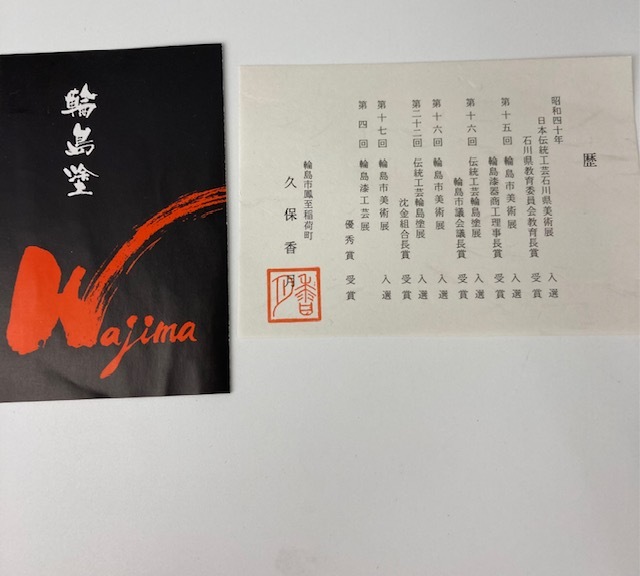 輪島塗
Wajima
歴
昭和四十年
日本伝統工芸石川県美術展 入選
石川県教育委員会教育長賞 受賞
第十五回 輪島市美術展 入選
輪島漆器商工理事長賞 受賞
第十六回 伝統工芸輪島塗展 入選
輪島市議会議長賞 受賞
第十六回 輪島市美術展 入選
第二十二回 伝統工芸輪島塗展 入選
沈金組合長賞 受賞
第十七回 輪島市美術展 入選
第四回 輪島漆工芸展
優秀賞 受賞
輪島市鳳至稲荷町
久保香月
香月